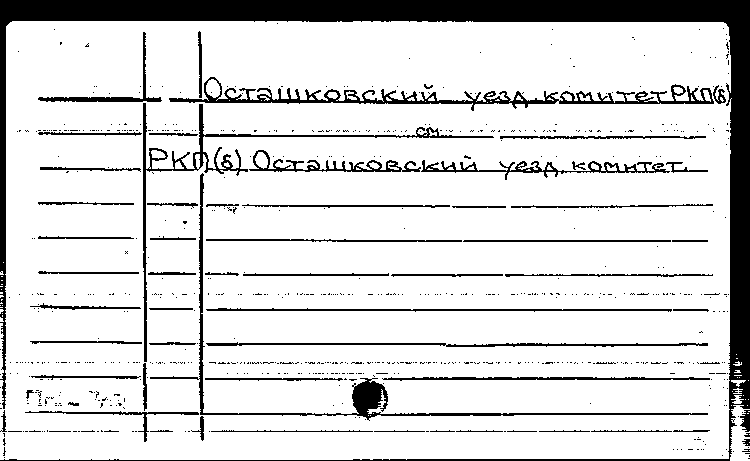 Осташковский уезд. комитет РКП(б)
см.
РКП(б) Осташковский уезд. комитет.